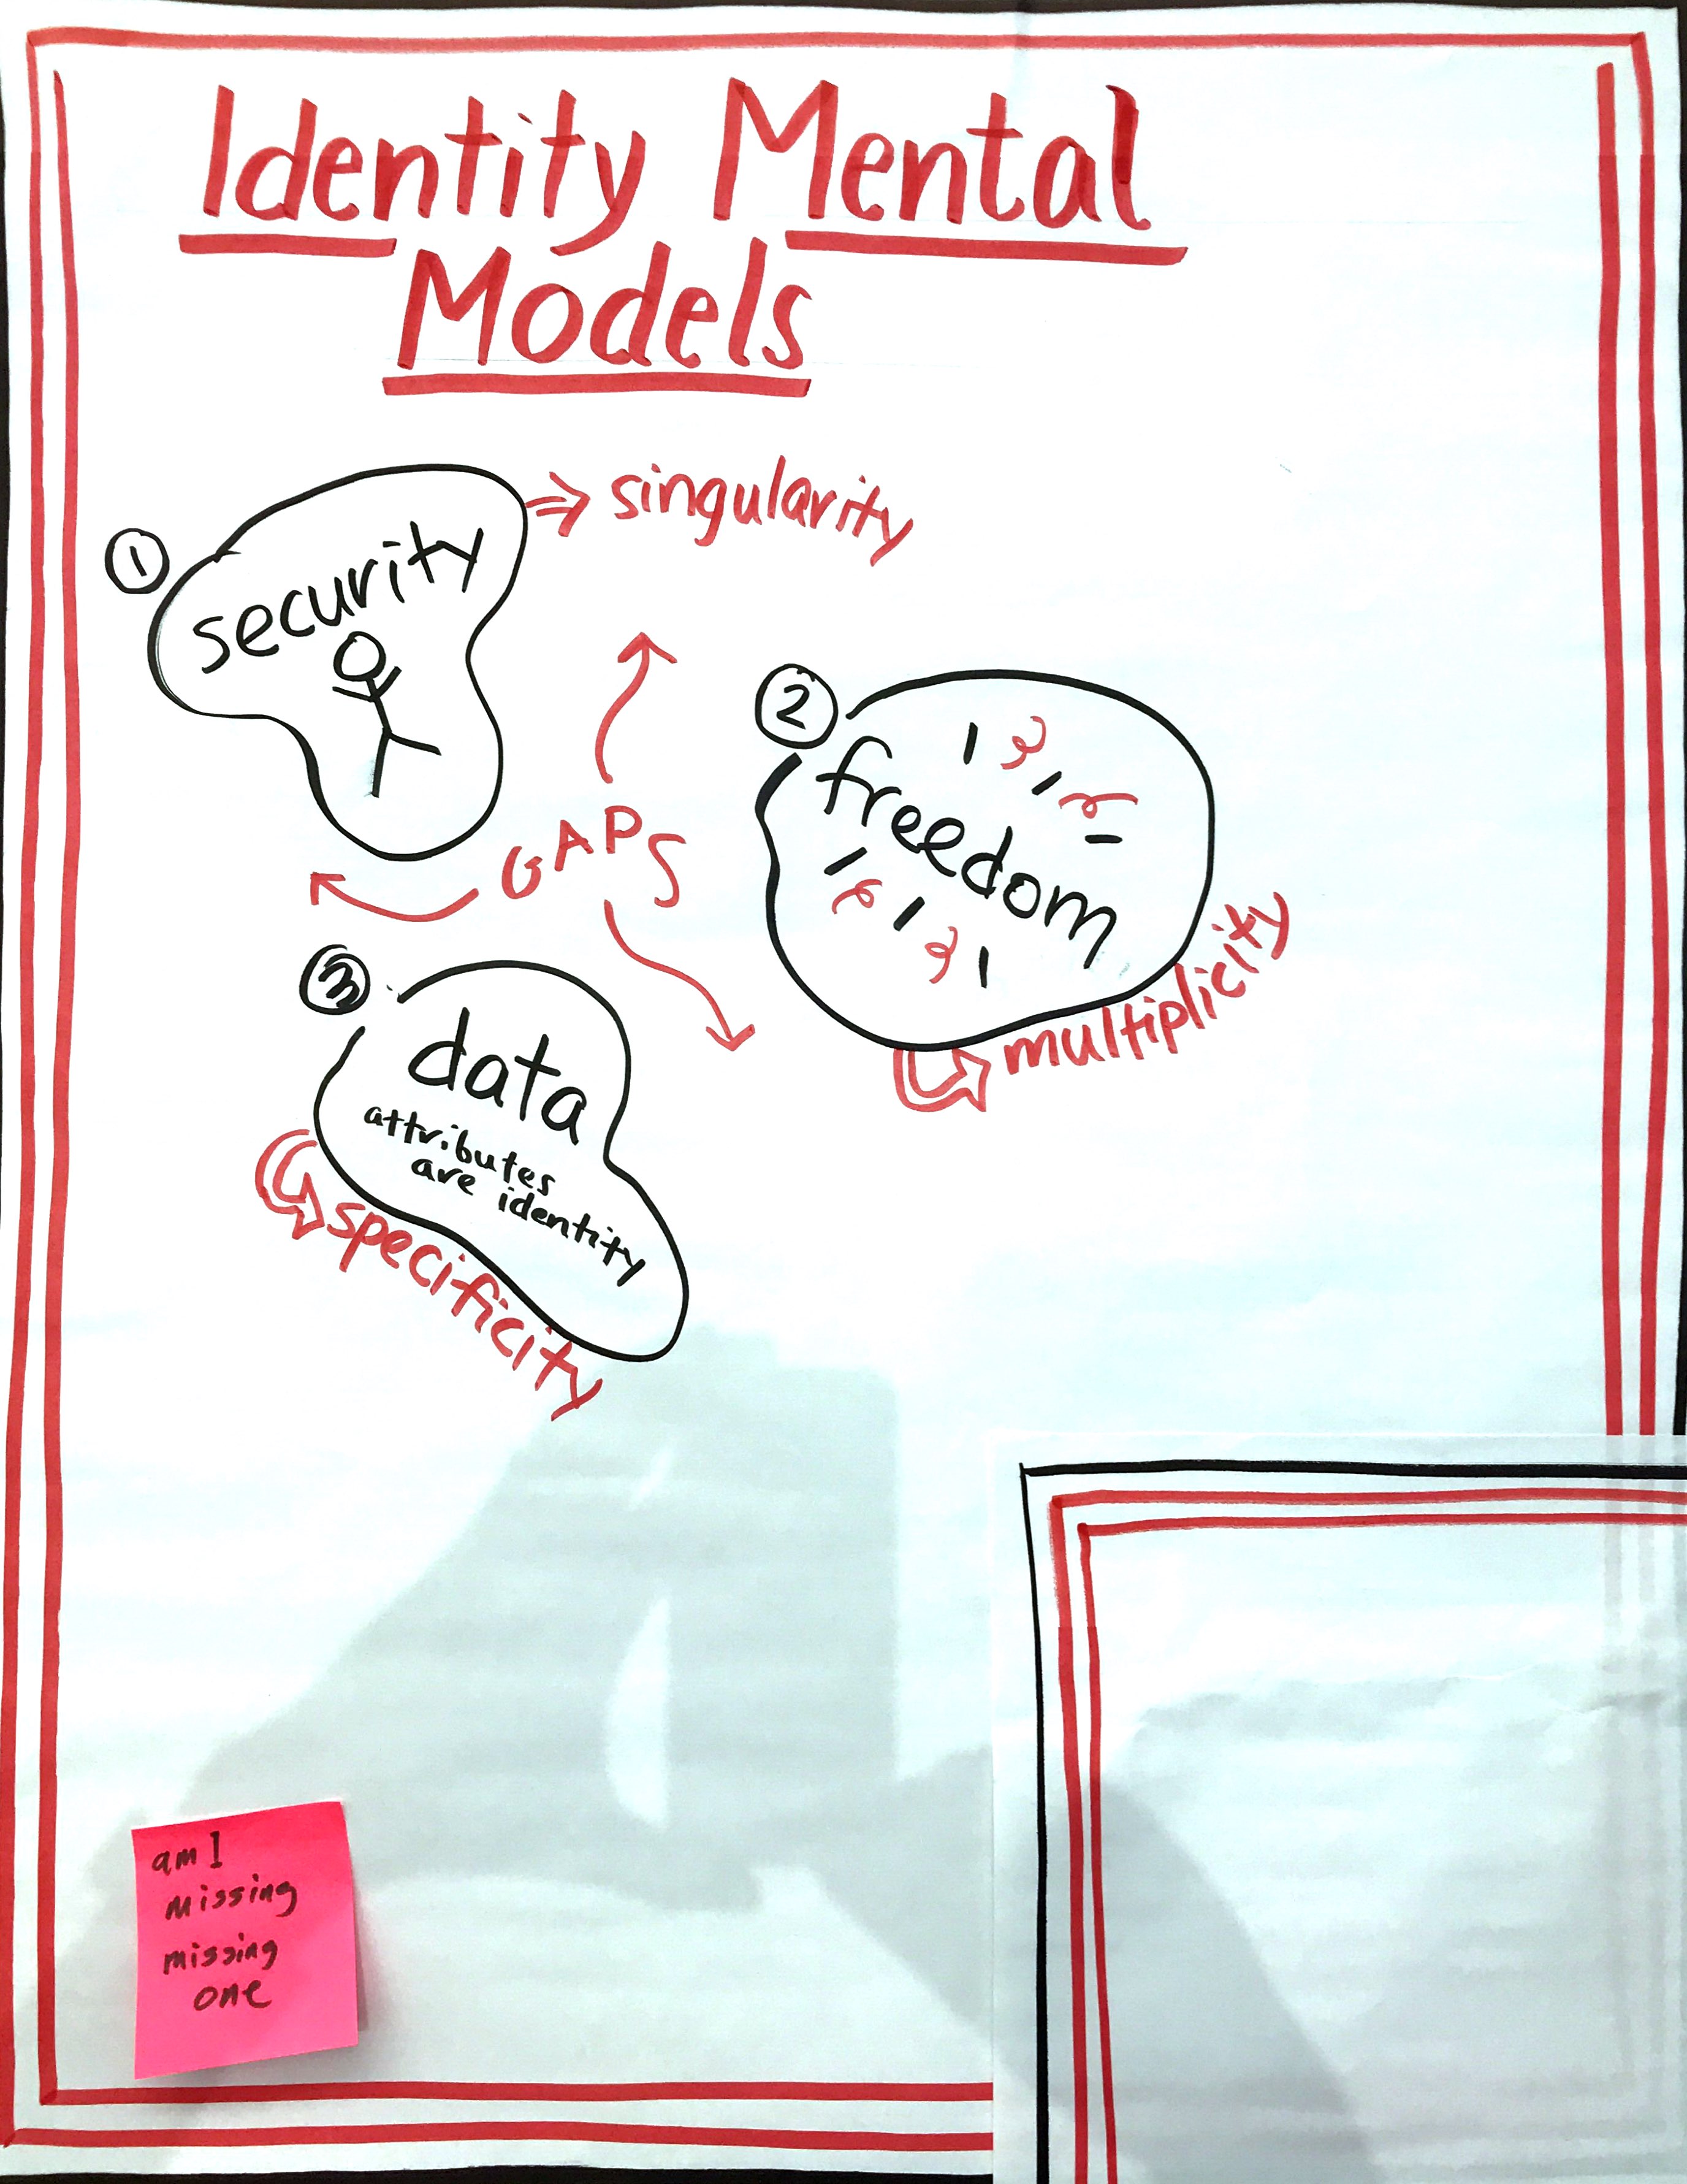 Identity Mental
Models
1
security
⇒ singularity
2
freedom
multiplicity
GAPS
3
data
attributes
are identity
specificity
am I
missing
missing
one